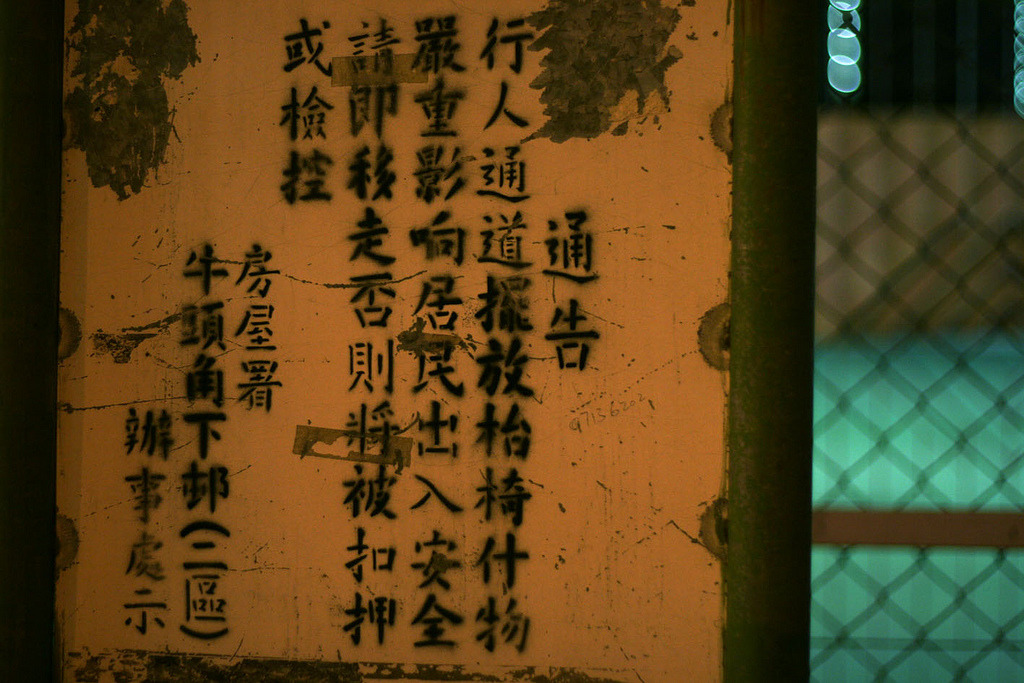 通告
行人通道擺放枱椅什物
嚴重影响居民出入安全
請即移走否則將被扣押
或檢控
房屋署
牛頭角下邨(二區)
辦事處示